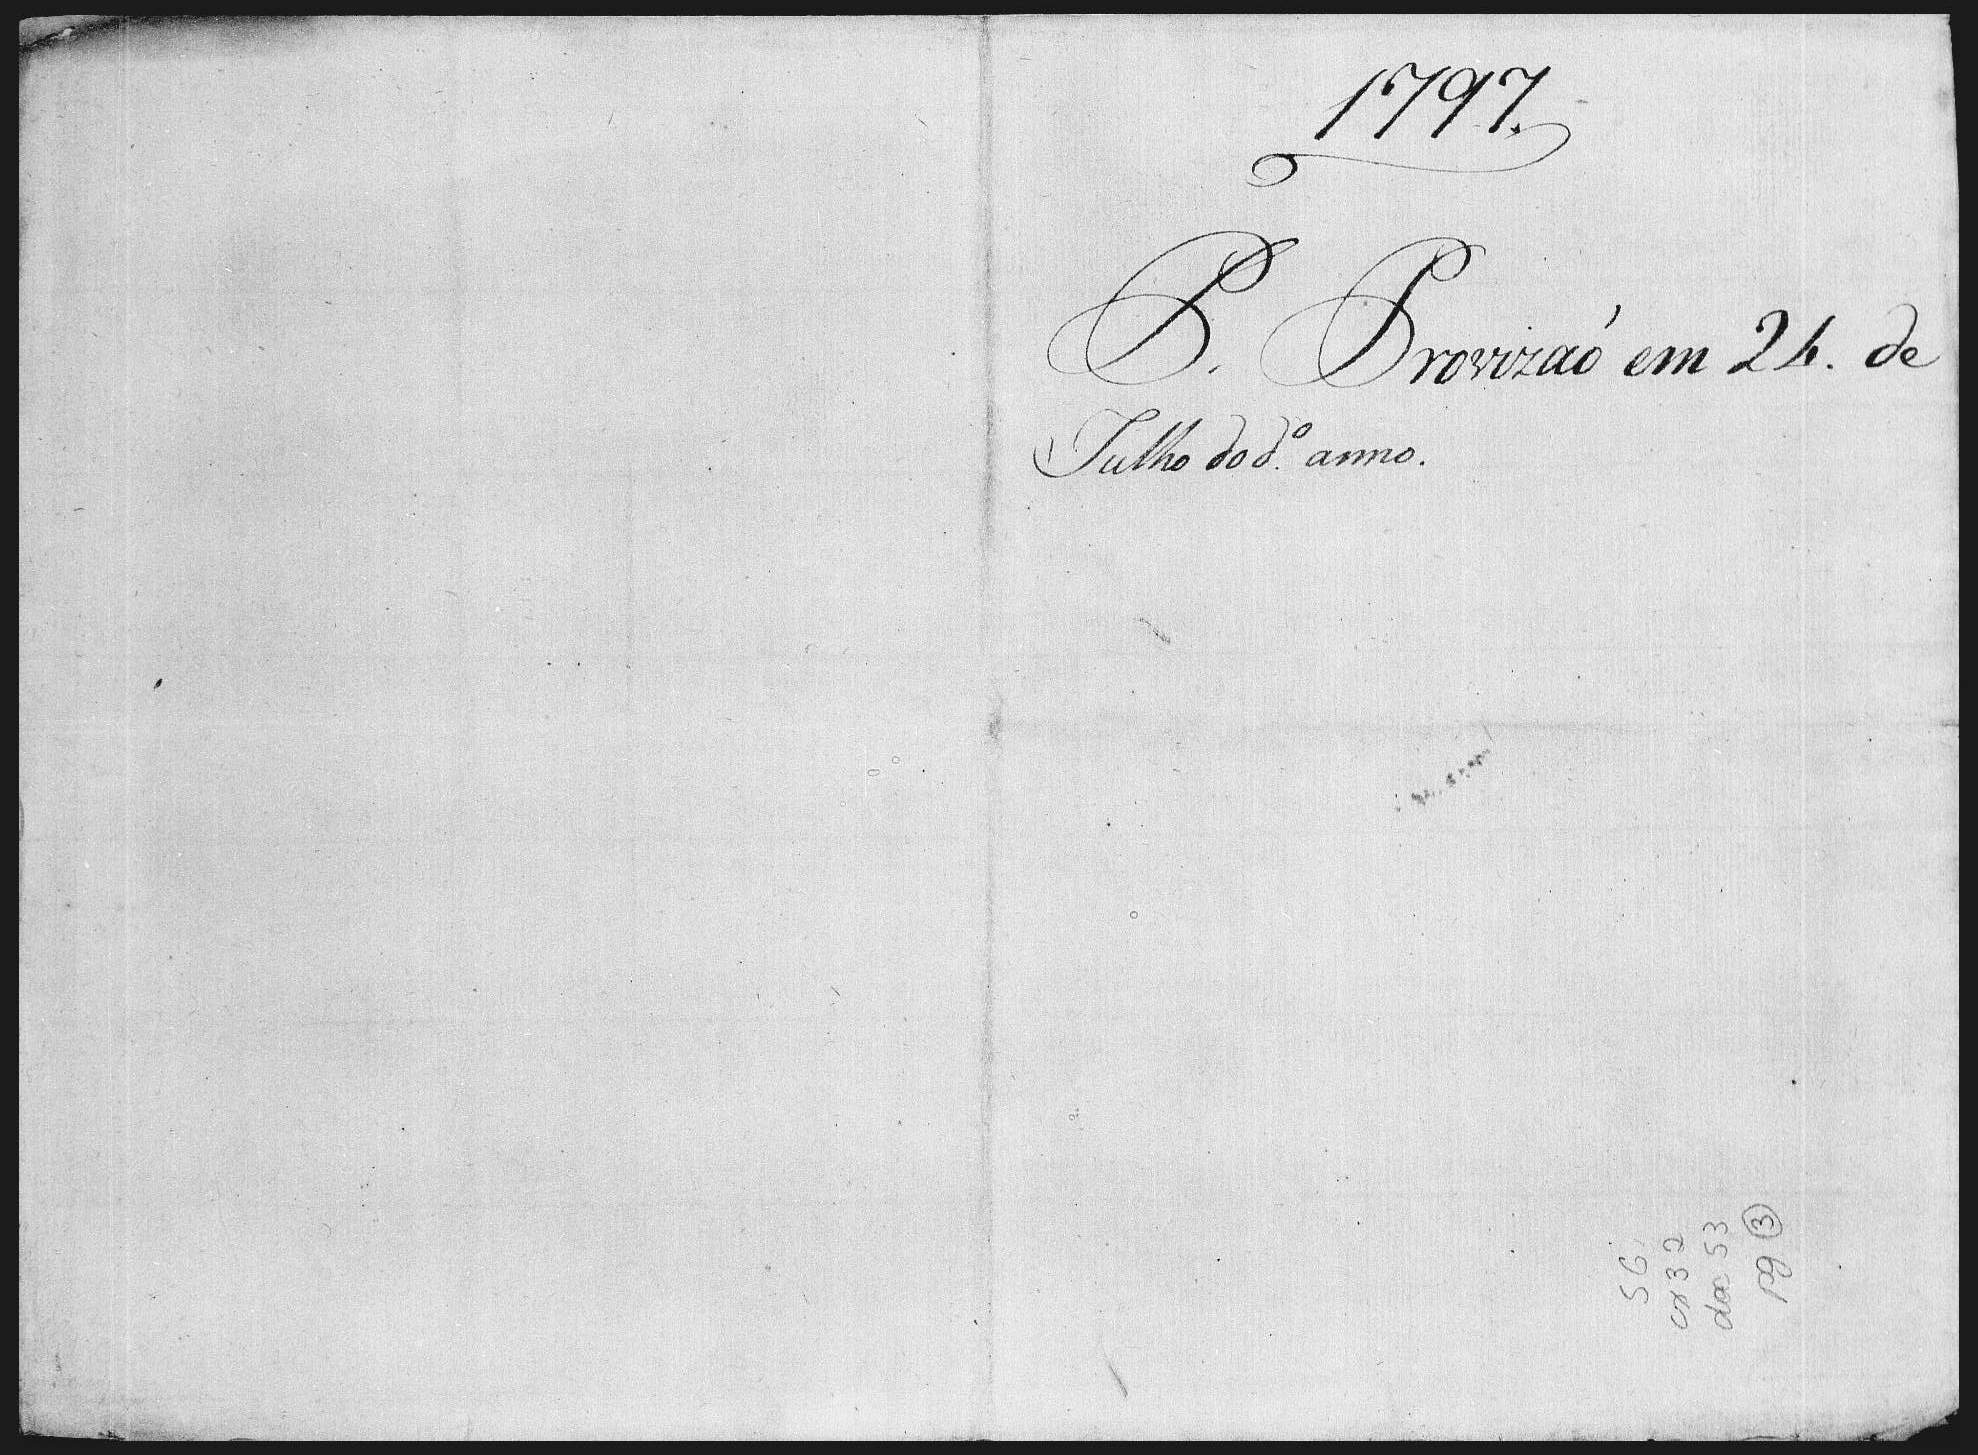 1797.
P. Provizaó em 24. de
Julho do d.º anno.
SG
cx 32
doc 53
pg 3